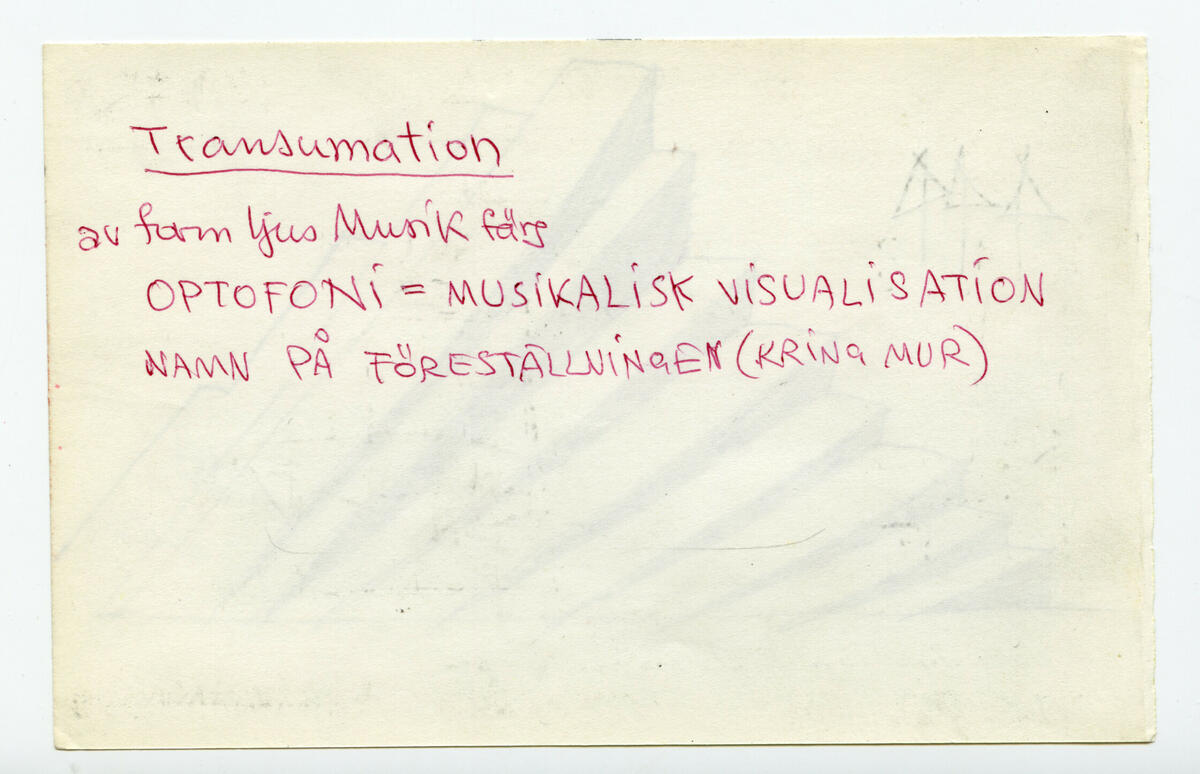 Transumation
av form ljus Musik färg
OPTOFONI = MUSIKALISK VISUALISATION
NAMN PÅ FÖRESTÄLLNINGEN (KRING MUR)